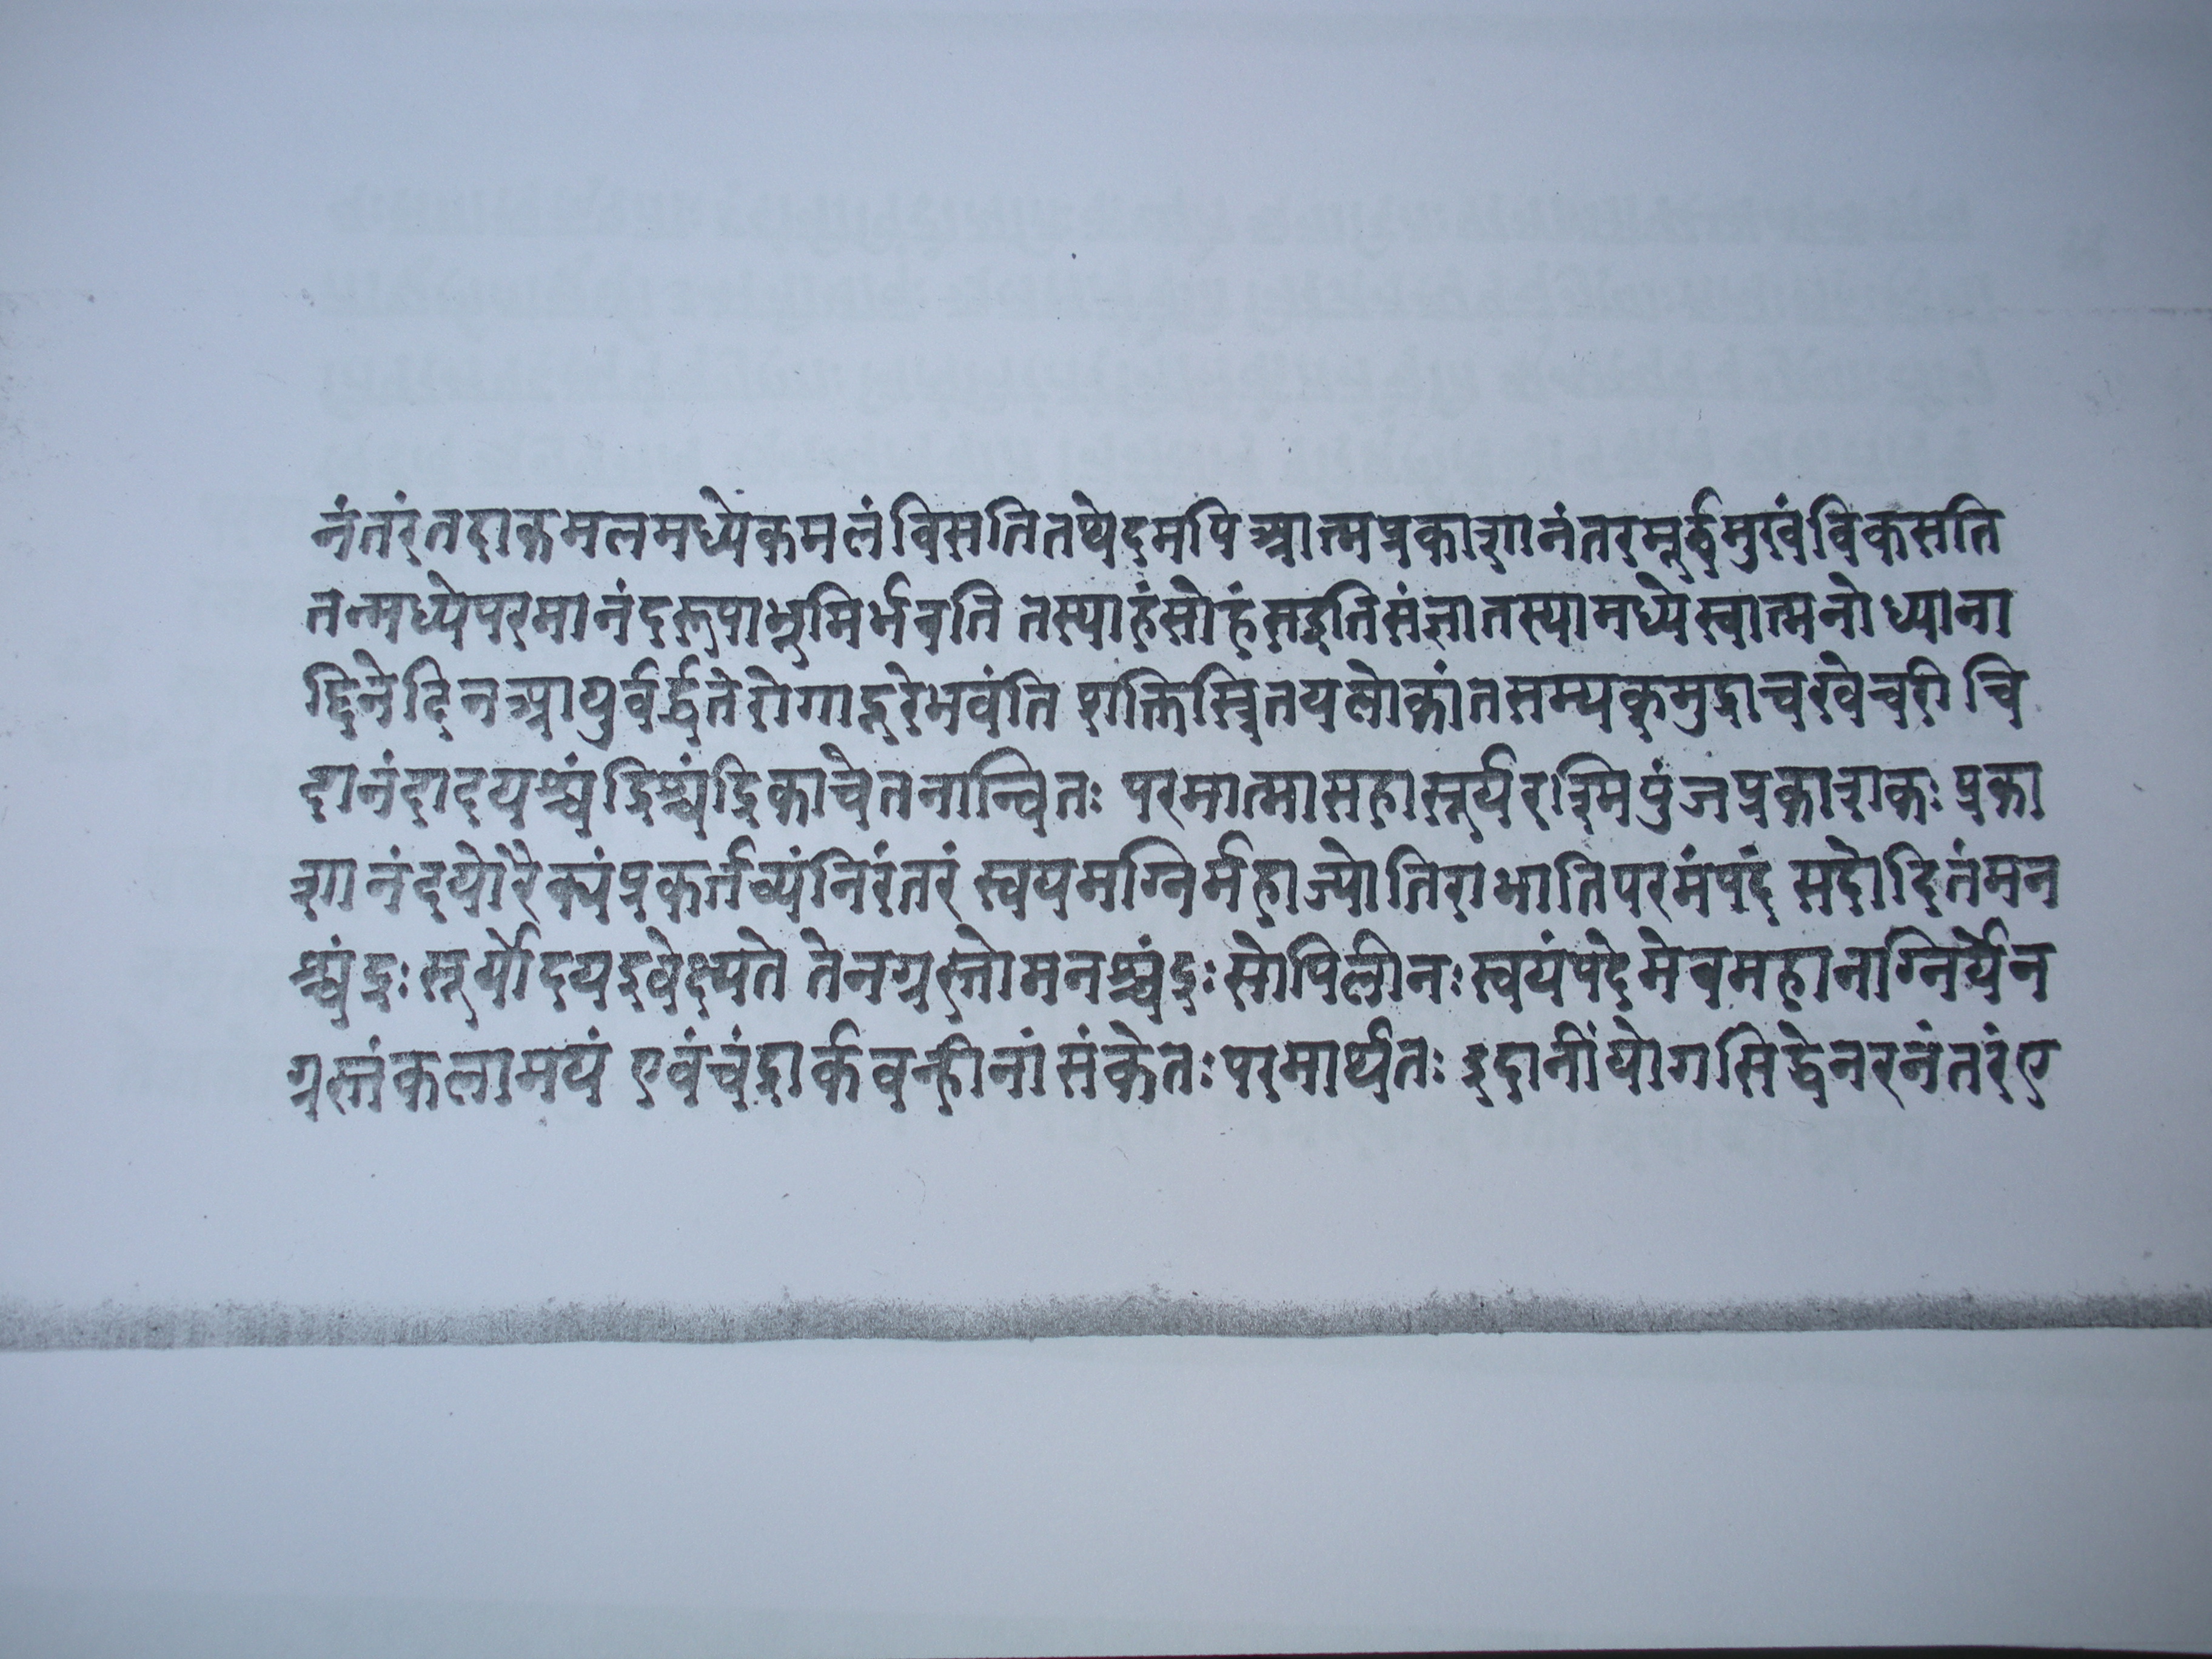 नंतरंतदाकमलमध्येकमलंविसतितथेदमपि आत्मप्रकाशानंतरमूर्द्धमुखंविकसति
तन्मध्येपरमानंदरूपाभूमिर्भवति तस्याहंसोहंसद्गतिसंज्ञातस्यामध्येस्वात्मनोध्याना
द्दिनेदिनआयुर्वर्द्धतेरोगाद्दूरेभवंति शक्तिस्त्रितयलोकांतसम्यक्मुद्राचखेचरी चि
दानंदादयश्चंद्रिश्चंद्रिकाचेतनान्वितः परमात्मासहासूर्यरश्मिपुंजप्रकाशकः प्रका
शानंदयोरैक्यंप्रकर्त्तव्यंनिरंतरं स्वयमग्निर्महाज्योतिराभातिपरमंपदं सदोदितंमन
श्चंद्रः सूर्योदयइवेक्ष्यते तेनग्रस्तोमनश्चंद्रः सोपिलीनः स्वयंपदे मेवमहानाग्निर्येन
ग्रस्तंकलामयं एवंचंद्रार्कवन्हीनांसंकेतः परमार्थतः इदानींयोगसिद्धेनरनंतरंए